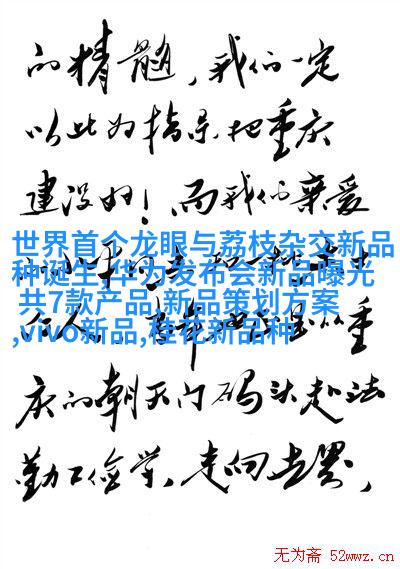 的精髓,我们一定
以此为指导把重庆
建设好!而我们亲爱
世界首个龙眼与荔枝杂交新品
种诞生,华为发布会新品曝光
共7款产品,新品策划方案
,vivo新品,桂花新品种
庆的朝天门码头赴法
勤工俭学,走向世界,
无为斋 52wwz.cn